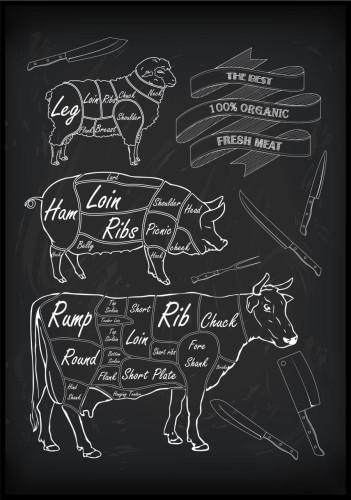 THE BEST
100% ORGANIC
FRESH MEAT
Leg
Loin
Ribs
Chuck
Neck
Shoulder
Flank
Breast
Lard
Ham
Loin
Ribs
Shoulder
Head
Picnic
cheek
Belly
Hock
Rump
Top Sirloin
Tender Loin
Top Sirloin
Bottom Sirloin
Short
Loin
Rib
Chuck
Round
Short ribs
Fore Shank
Flank
Short Plate
Hind Shank
Hanging Tender
Brisket